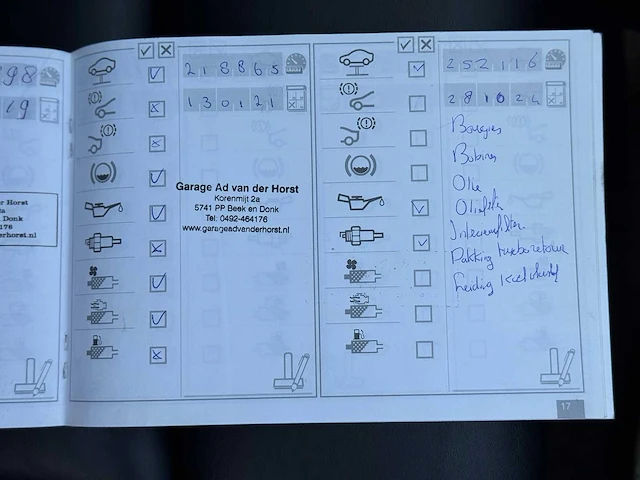 98
19
er Horst
2a
n Donk
76
erhorst.nl
218865
130121
Garage Ad van der Horst
Korenmijt 2a
5741 PP Beek en Donk
Tel: 0492-464176
www.garageadvanderhorst.nl
252116
281024
Bougies
Bobines
Olie
Oliefilter
Interieurfilter
Pakking
Leiding
17